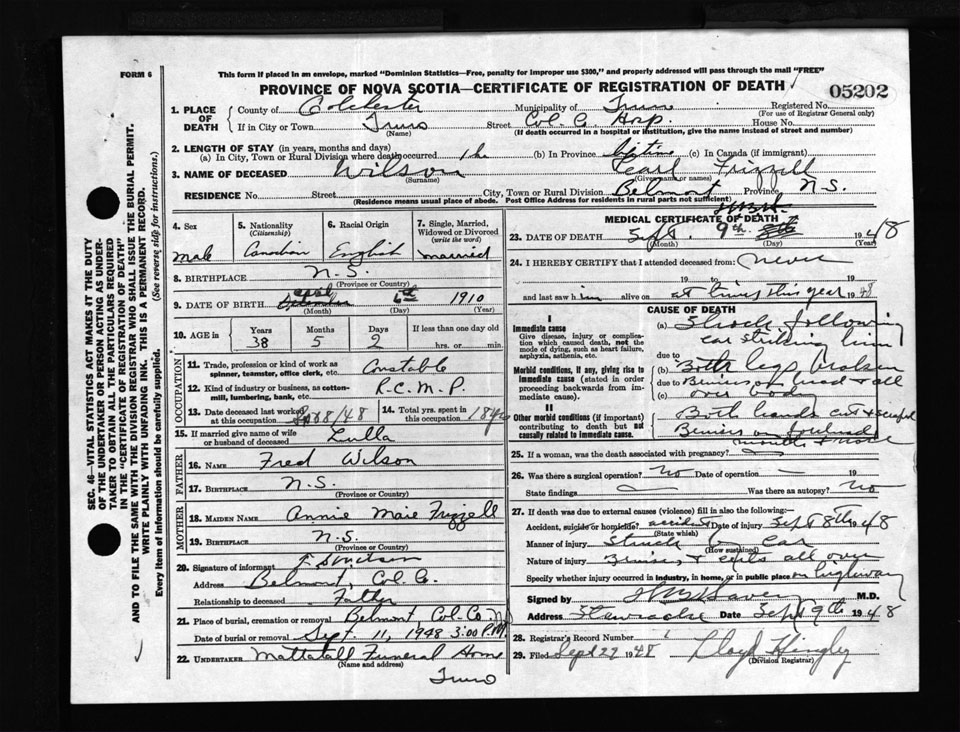 FORM 6
This form if placed in an envelope, marked "Dominion Statistics—Free, penalty for improper use $300," and properly addressed will pass through the mail "FREE"
PROVINCE OF NOVA SCOTIA—CERTIFICATE OF REGISTRATION OF DEATH
05202
1. PLACE OF DEATH
County of Colchester Municipality of Truro Registered No.
(For use of Registrar General only)
If in City or Town Truro Street Col. Co. Hosp. House No.
(Name) (If death occurred in a hospital or institution, give the name instead of street and number)
2. LENGTH OF STAY (in years, months and days)
(a) In City, Town or Rural Division where death occurred (b) In Province life time (c) In Canada (if immigrant)
3. NAME OF DECEASED Wilson Carl Frizzell
(Surname) (Given name or names)
RESIDENCE No. Street City, Town or Rural Division Belmont Province N.S.
(Residence means usual place of abode. Post Office Address for residents in rural parts not sufficient)
4. Sex
Male
5. Nationality (Citizenship)
Canadian
6. Racial Origin
English
7. Single, Married, Widowed or Divorced (write the word)
married
8. BIRTHPLACE N.S.
(Province or Country)
9. DATE OF BIRTH 6th 1910
(Month) (Day) (Year)
10. AGE in Years Months Days If less than one day old
38 5 2 hrs. or min.
OCCUPATION
11. Trade, profession or kind of work as spinner, teamster, office clerk, etc. Constable
12. Kind of industry or business, as cotton-mill, lumbering, bank, etc. R.C.M.P.
13. Date deceased last worked at this occupation 8/48
14. Total yrs. spent in this occupation
15. If married give name of wife or husband of deceased Lulla
FATHER
16. NAME Fred Wilson
17. BIRTHPLACE N.S.
(Province or Country)
MOTHER
18. MAIDEN NAME Annie Marie Frizzell
19. BIRTHPLACE N.S.
(Province or Country)
20. Signature of informant
Address Belmont, Col. Co.
Relationship to deceased Father
21. Place of burial, cremation or removal Belmont Col. Co. NS
Date of burial or removal Sept. 11, 1948 3:00 P.M.
22. UNDERTAKER Mattatall Funeral Home
(Name and address)
Truro
MEDICAL CERTIFICATE OF DEATH
23. DATE OF DEATH Sept. 9th 1948
(Month) (Day) (Year)
24. I HEREBY CERTIFY that I attended deceased from: never
19 to 19
and last saw him alive on at times this year 1948
CAUSE OF DEATH
I
Immediate cause
Give disease, injury or complication which caused death, not the mode of dying, such as heart failure, asphyxia, asthenia, etc.
(a) Shock following
car striking him
due to
Morbid conditions, if any, giving rise to immediate cause (stated in order proceeding backwards from immediate cause).
(b) Both legs broken
due to Bruises of head & all
(c) over body
II
Other morbid conditions (if important) contributing to death but not causally related to immediate cause.
Both hands cut & scraped
Bruises on forehead
mouth & nose
25. If a woman, was the death associated with pregnancy?
26. Was there a surgical operation? no Date of operation 19
State findings Was there an autopsy? No
27. If death was due to external causes (violence) fill in also the following:
Accident, suicide or homicide? accident Date of injury Sept 8th 1948
(State which)
Manner of injury Struck by car
(How sustained)
Nature of injury Bruises & cuts all over
Specify whether injury occurred in industry, in home, or in public place on highway
Signed by M.D.
Address Stewiacke Date Sept 9th 1948
28. Registrar's Record Number
29. Filed Sept 27 1948 Lloyd
(Division Registrar)
SEC. 46—VITAL STATISTICS ACT MAKES IT THE DUTY
OF THE UNDERTAKER OR PERSON ACTING AS UNDER-
TAKER TO OBTAIN ALL THE PARTICULARS REQUIRED
IN THE "CERTIFICATE OF REGISTRATION OF DEATH"
AND TO FILE THE SAME WITH THE DIVISION REGISTRAR WHO SHALL ISSUE THE BURIAL PERMIT.
WRITE PLAINLY WITH UNFADING INK. THIS IS A PERMANENT RECORD.
Every item of information should be carefully supplied. (See reverse side for instructions.)